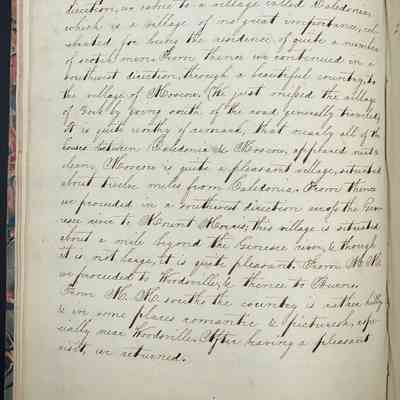 direction, we came to a village called Caledonia,
which is a village of no great importance, cel-
ebrated for being the residence of quite a number
of scotch men. From thence we continued in a
southwest direction, through a beautiful country, to
the village of Moscow. (We just missed the village
of York by going south of the road generally traveled)
It is quite worthy of remark, that nearly all of the
houses between Caledonia & Moscow, appeared neat &
clean. Moscow is quite a pleasant village, situated
about twelve miles from Caledonia. From thence
we proceeded in a southwest direction across the Gen-
esee river to Mount Morris; this village is situated
about a mile beyond the Genesee river, & though
it is not large, it is quite pleasant. From M. M.
we proceeded to Woodsville, & thence to Burns.
From M. M. south the country is rather hilly
& in some places romantic & picturesk, espe-
cially near Woodsville. After having a pleasant
visit, we returned.